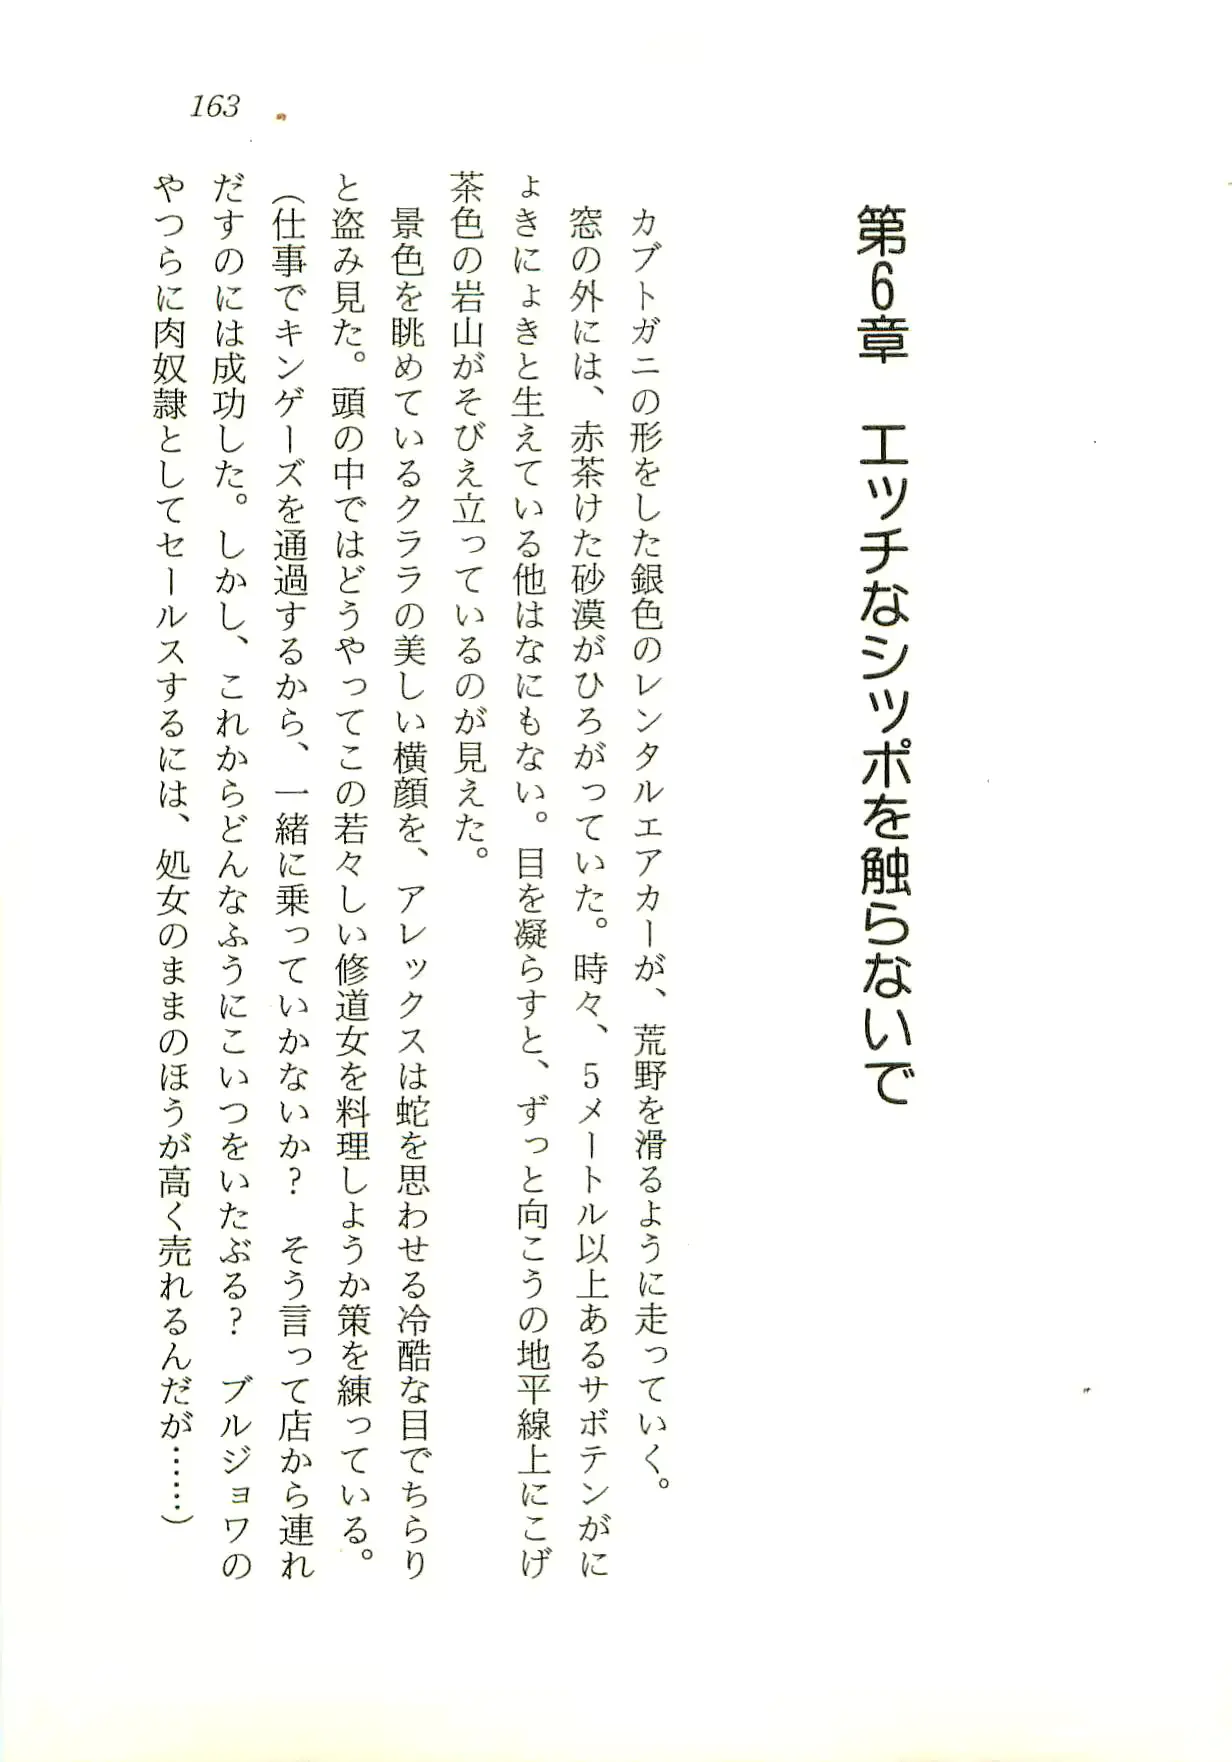 163
第6章 エッチなシッポを触らないで
カブトガニの形をした銀色のレンタルエアカーが、荒野を滑るように走っていく。
窓の外には、赤茶けた砂漠がひろがっていた。時々、5メートル以上あるサボテンがに
ょきにょきと生えている他はなにもない。目を凝らすと、ずっと向こうの地平線上にこげ
茶色の岩山がそびえ立っているのが見えた。
景色を眺めているクララの美しい横顔を、アレックスは蛇を思わせる冷酷な目でちらり
と盗み見た。頭の中ではどうやってこの若々しい修道女を料理しようか策を練っている。
(仕事でキンゲーズを通過するから、一緒に乗っていかないか? そう言って店から連れ
だすのには成功した。しかし、これからどんなふうにこいつをいたぶる? ブルジョワの
やつらに肉奴隷としてセールスするには、処女のままのほうが高く売れるんだが……)